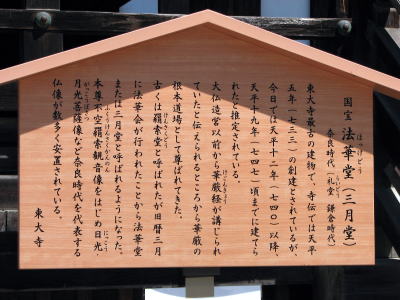 国宝 法華堂（三月堂）
ほっけどう
奈良時代（礼堂 鎌倉時代）
らいどう
東大寺最古の建物で、寺伝では天平
五年（七三三）の創建とされているが、
今日では天平十二年（七四〇）以降、
天平十九年（七四七）頃までに建てら
れたと推定されている。
大仏造営以前から華厳経が講じられ
けごんきょう
ていたと伝えられるところから華厳の
根本道場として尊ばれてきた。
古くは羂索堂と呼ばれたが旧暦三月
けんさくどう
に法華会が行われたことから法華堂
または三月堂と呼ばれるようになった。
本尊不空羂索観音像をはじめ日光
ふくうけんさくかんのん
にっこう
月光菩薩像など奈良時代を代表する
がっこうぼさつ
仏像が数多く安置されている。
東大寺